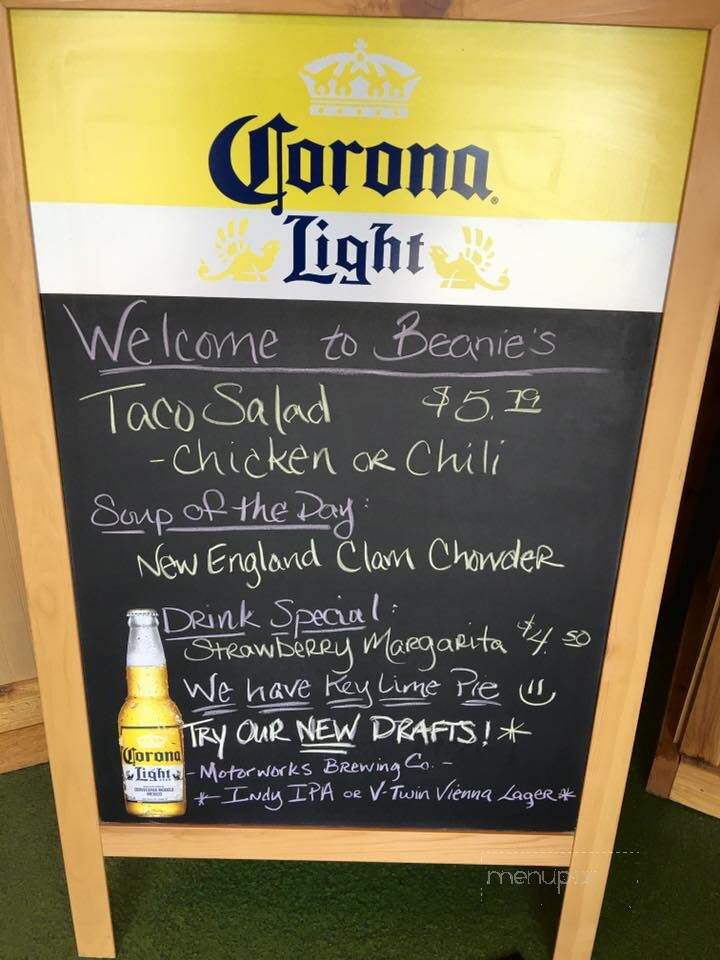 Corona
Light
Welcome to Beanie's
Taco Salad $5.79
-Chicken or Chili
Soup of the Day:
New England Clam Chowder
Drink Special:
Strawberry Margarita $4.50
We have Key Lime Pie
Try our NEW DRAFTS! *
- Motorworks Brewing Co. -
* Indy IPA or V-Twin Vienna Lager *
Corona
Light